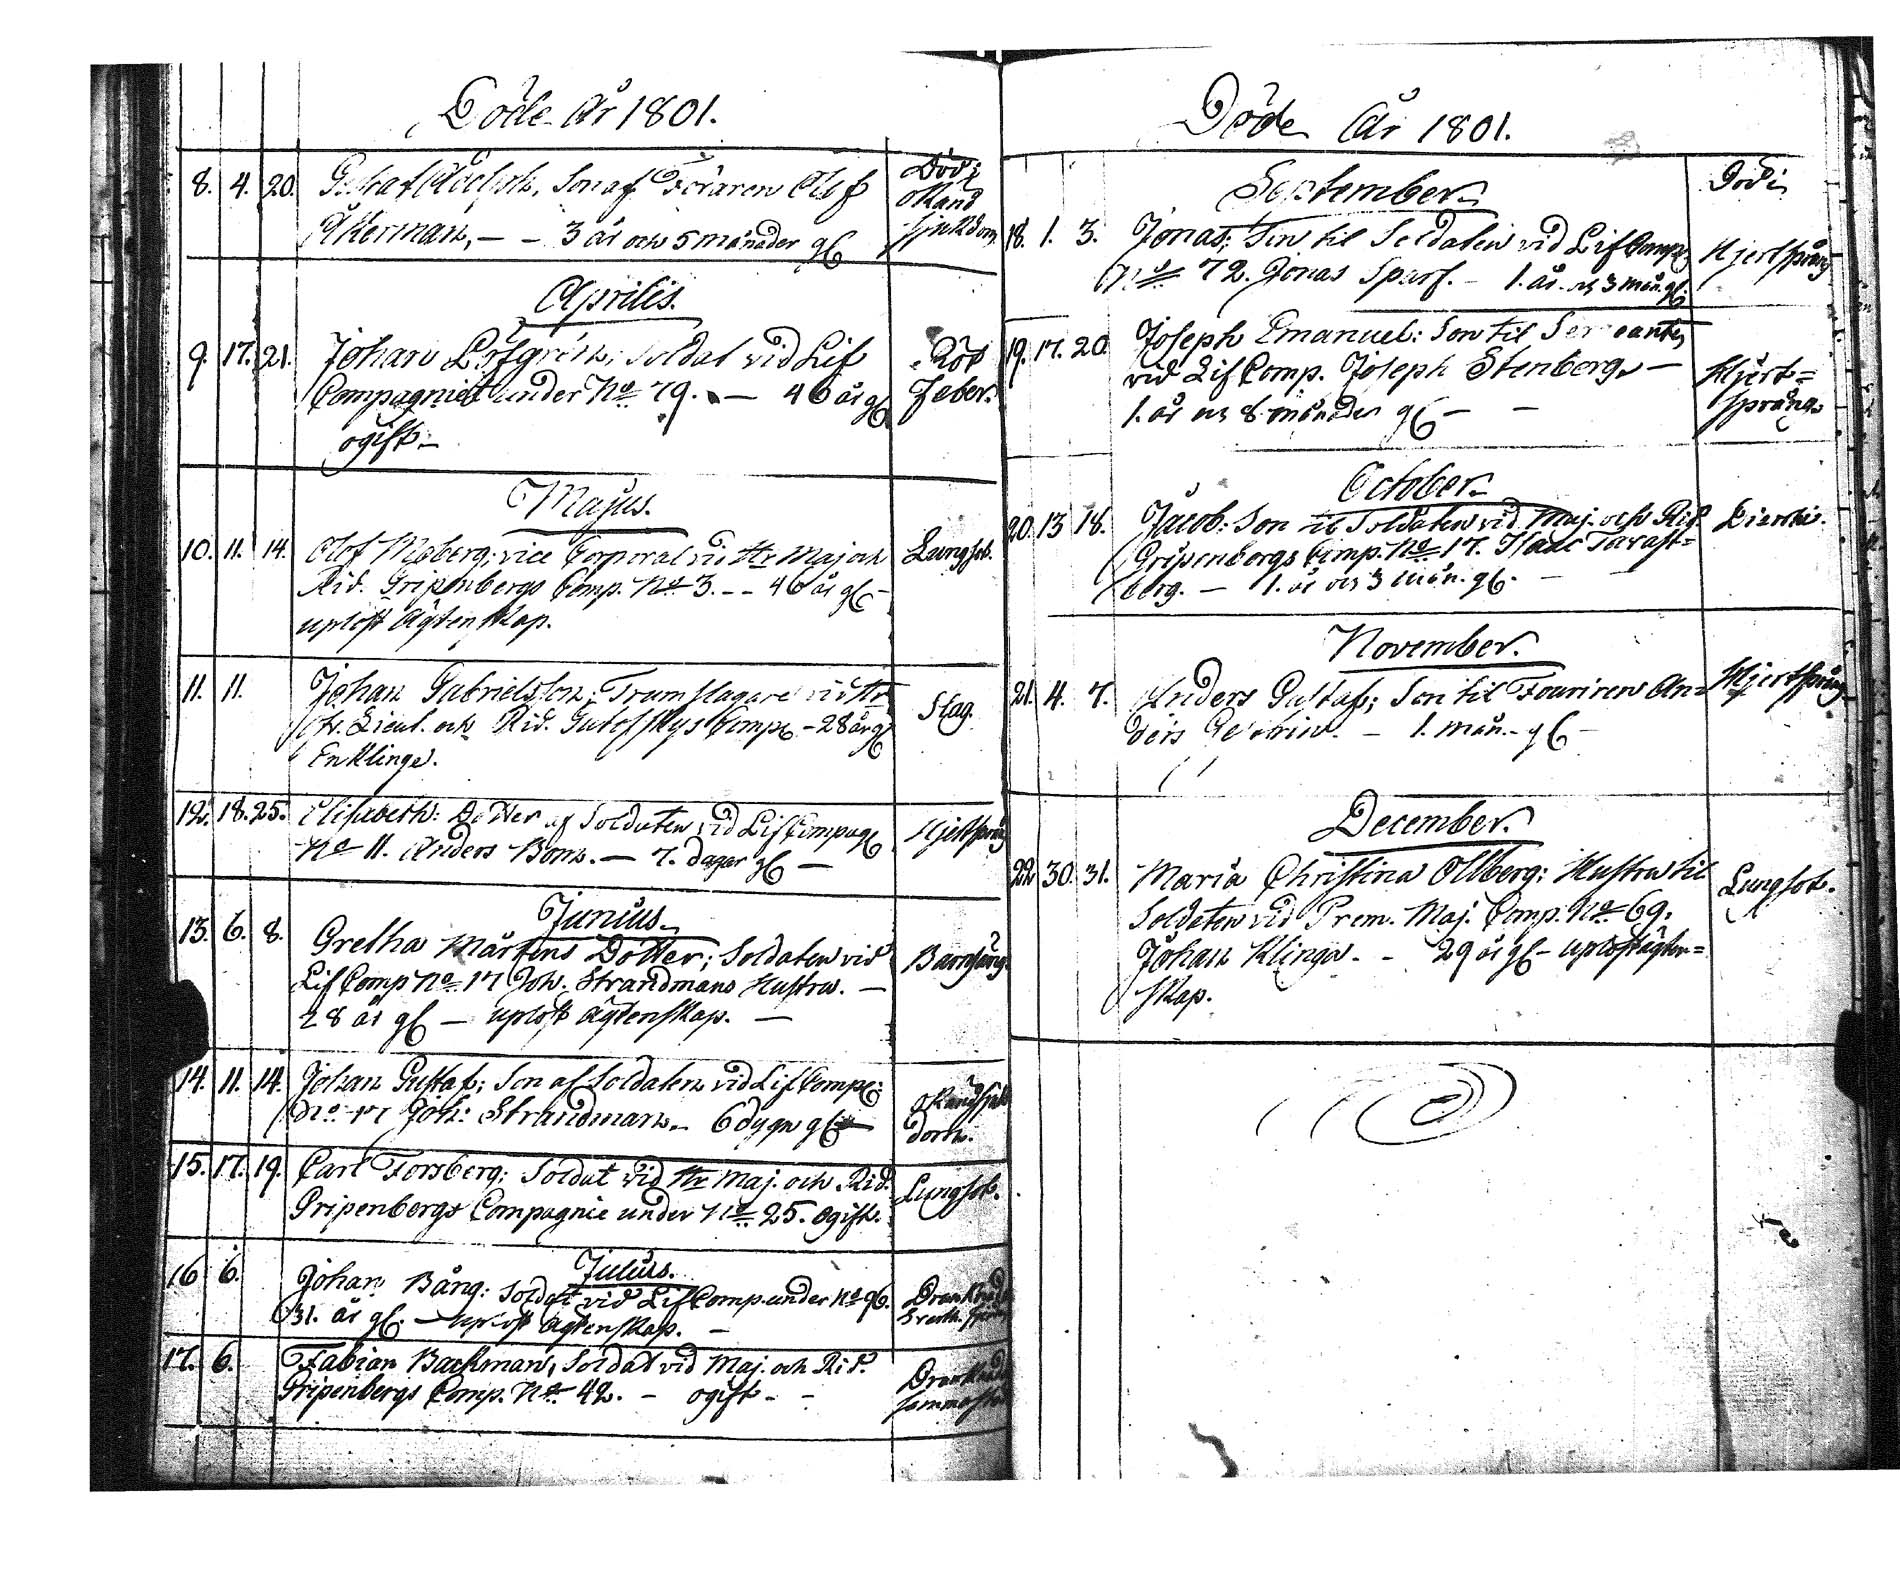 Döde År 1801.
Död i
8. 4. 20. Gustaf Adolph, Son af Föraren Olof okänd
Åkerman, — – 3 år och 5 månader gl. sjukdom
Aprilis.
9. 17. 21. Johan Löfgrén; Soldat vid Lif Röt
Compagniet under No 79. — 46 år gl. feber.
ogift. –
Majus.
10. 11. 14. Olof Moberg; vice Corporal vid Hr Maj och Lungsot.
Rid. Gripenbergs Comp. No 3. – – 46 år gl. –
uplöst ägtenskap.
11. 11. Johan Gabrielsson; Trumslagare vid Hr Slag.
Öv. Lieut. och Rid. Comp. – 28 år gl.
Enkling.
12. 18. 25. Elisabeth: Dotter af Soldaten vid Lif Compag. Hjertsprång
No 11. Anders Bom. — 7. dagar gl. —
Junius.
13. 6. 8. Gretha Mårtens Dotter; Soldaten vid Barnsäng.
Lif Comp No 17 Joh. Strandmans Hustru. —
28 år gl. — uplöst ägtenskap. —
14. 11. 14. Johan Gustaf; Son af Soldaten vid Lif Comp. okänd sjuk
No 17 Joh: Strandman. – 6 dygn gl. — dom.
15. 17. 19. Carl Forsberg; Soldat vid Hr Maj. och Rid. Lungsot.
Gripenbergs Compagnie under No 25. Ogift.
Julius.
16 6. Johan Bång: Soldat vid Lif Comp. under No 96. Drunknad
31. år gl. — uplöst ägtenskap. —
17. 6. Fabian Backman, Soldat vid Maj. och Rid. Drunknade
Gripenbergs Comp. No 42. – ogift – –
Döde År 1801.
Död i
September.
18. 1. 3. Jonas; Son til Soldaten vid Lif Comp. Hjertsprång
No 72. Jonas Sparf. – 1. år och 3 mån. gl.
19. 17. 20. Joseph Emanuel: Son til Sergeanten
vid Lif Comp. Joseph Stenberg. — Hjert=
1. år och 8 månader gl. — – språng.
October.
20. 13 18. Jacob: Son til Soldaten vid Maj. och Rid. Diarrhé.
Gripenbergs Comp. No 17. Isaac Tavast=
berg. — 1. år och 3 mån. gl. –
November.
21. 4. 7. Anders Gustaf; Son til Fouriren An= Hjertsprång
ders – 1. mån. gl. –
December.
22 30. 31. Maria Christina Ollberg: Hustru til Lungsot.
Soldaten vid Prem. Maj. Comp. No 69.
Johan Kling. – 29 år gl. – uplöst ägten=
skap.